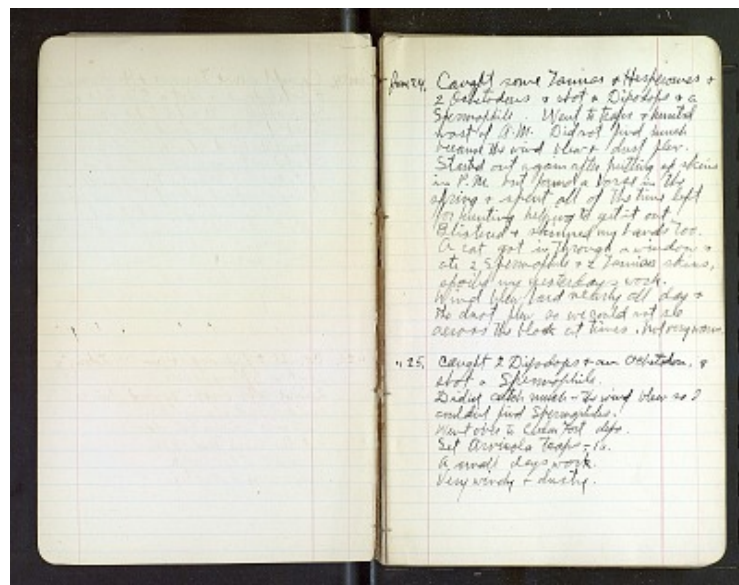 June 24, Caught some Tamias & Hesperomes &
2 Ochetodons & shot a Dipodops & a
Spermophile. Went to traps & hunted
most of A.M. Did not find much
because the wind blew & dust flew.
Started out again after putting up skins
in P.M. but found a horse in the
spring & spent all of the time left
for hunting helping to get it out.
Blistered & skinned my hands too.
A cat got in through a window &
ate 2 Spermophiles & 2 Tamias skins,
spoils my yesterdays work.
Wind blew hard nearly all day &
the dust flew so we could not see
across the block at times. Not very warm.
" 25, Caught 2 Dipodops & an Ochetodon, &
shot a Spermophile.
Didnt catch much - The wind blew so I
couldnt find Spermophiles.
Went over to
Set Arvicola traps - 12.
A small days work.
Very windy & dusty.